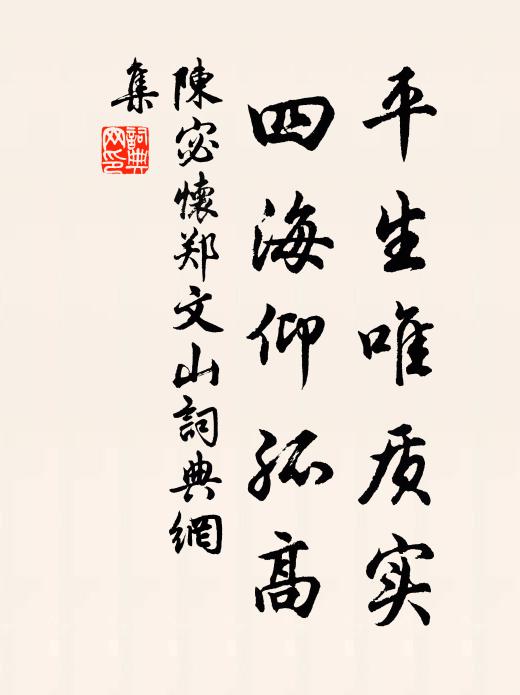 平生唯质实
四海仰孤高
陳宓懷郑文山詞典網
集
詞典網印